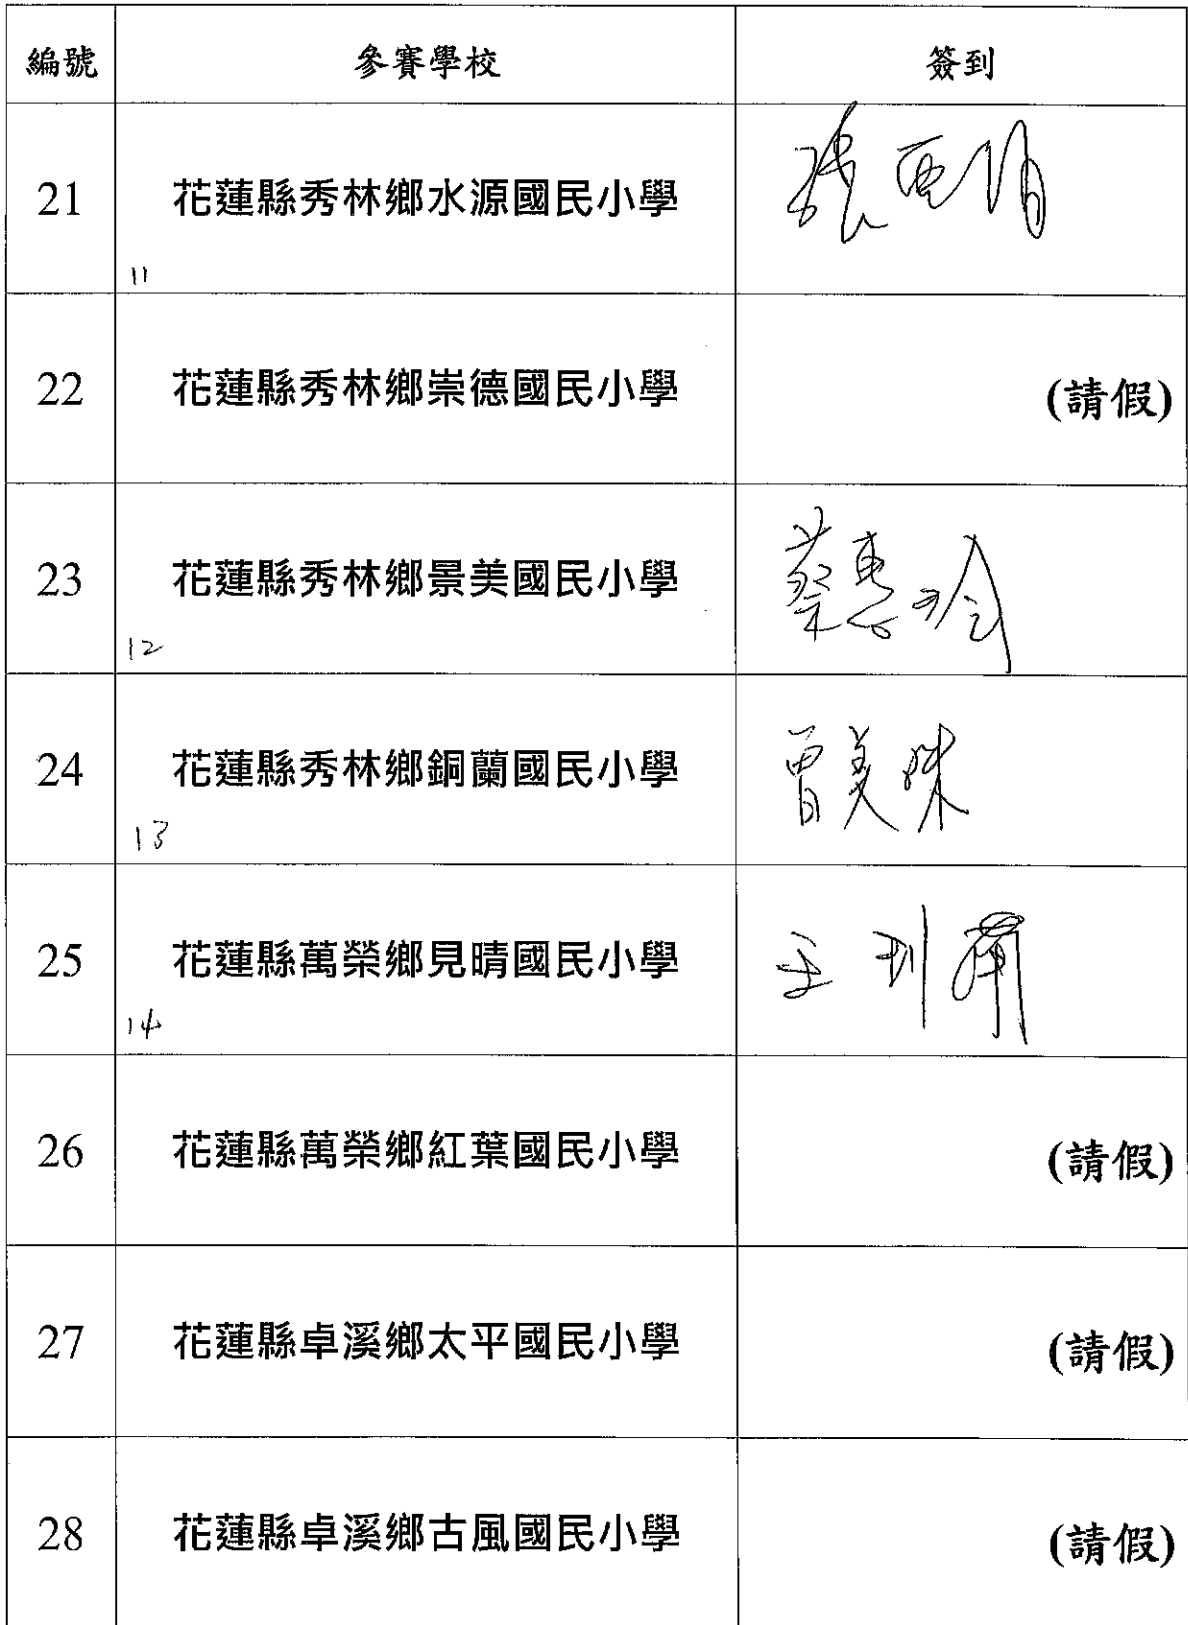 編號 參賽學校 簽到
21 花蓮縣秀林鄉水源國民小學
11
22 花蓮縣秀林鄉崇德國民小學 (請假)
23 花蓮縣秀林鄉景美國民小學 蔡惠玲
12
24 花蓮縣秀林鄉銅蘭國民小學 曾美
13
25 花蓮縣萬榮鄉見晴國民小學
14
26 花蓮縣萬榮鄉紅葉國民小學 (請假)
27 花蓮縣卓溪鄉太平國民小學 (請假)
28 花蓮縣卓溪鄉古風國民小學 (請假)